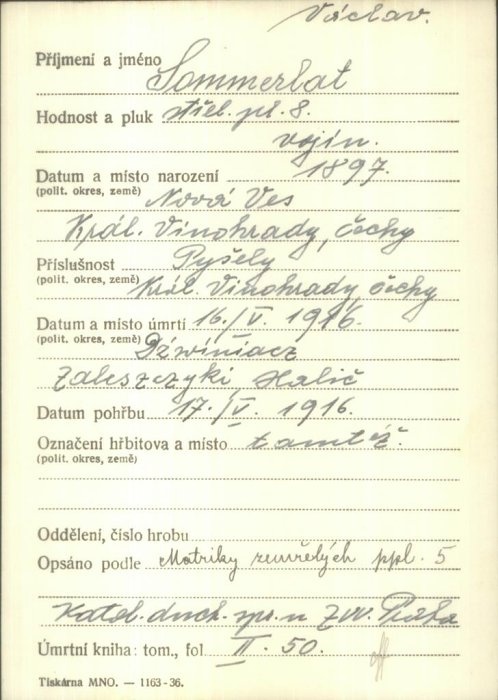 Václav.
Příjmení a jméno Sommerlat
Hodnost a pluk střel. pl. 8.
vojín.
Datum a místo narození 1897.
(polit. okres, země) Nová Ves
Král. Vinohrady, Čechy
Příslušnost Pyšely
(polit. okres, země) Král. Vinohrady, Čechy
Datum a místo úmrtí 16./V. 1916.
(polit. okres, země) Dźwiniacz
Zaleszczyki, Halič
Datum pohřbu 17./V. 1916.
Označení hřbitova a místo tamtéž.
(polit. okres, země)
Oddělení, číslo hrobu
Opsáno podle Matriky zemřelých ppl. 5
Katol. duch. spr. u ZVV. Praha
Úmrtní kniha: tom., fol II. 50.
Tiskárna MNO. — 1163-36.